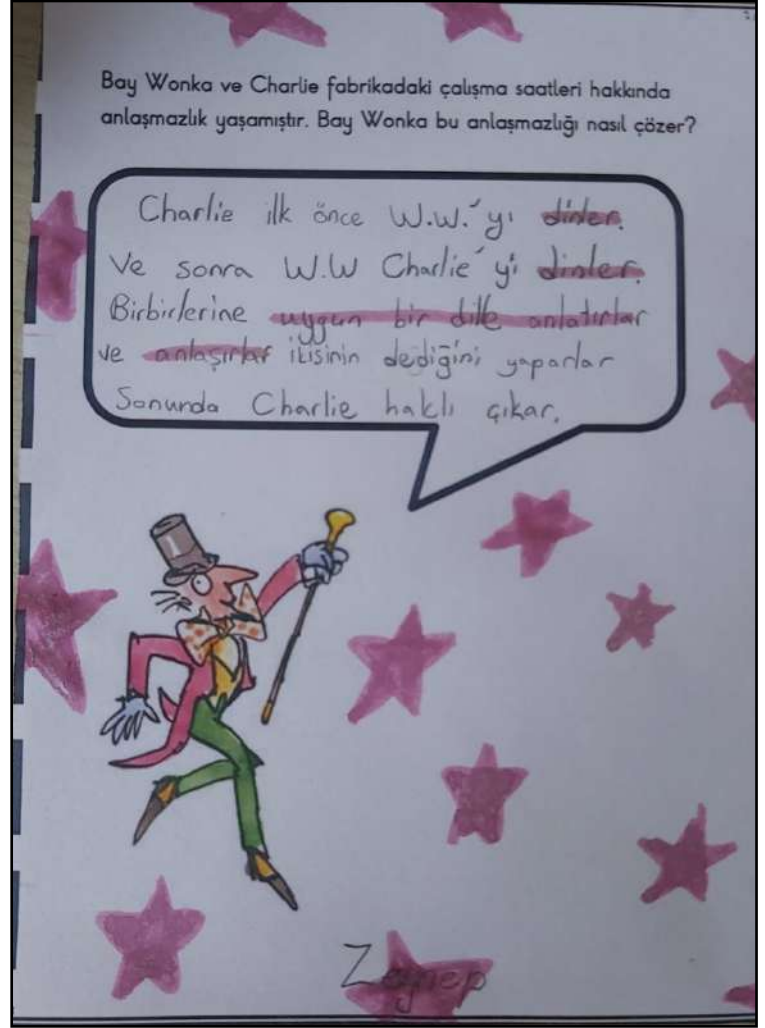 Bay Wonka ve Charlie fabrikadaki çalışma saatleri hakkında
anlaşmazlık yaşamıştır. Bay Wonka bu anlaşmazlığı nasıl çözer?
Charlie ilk önce W.W.'yı dinler.
Ve sonra W.W Charlie'yi dinler.
Birbirlerine uygun bir dille anlatırlar
ve anlaşırlar ikisinin dediğini yaparlar
Sonunda Charlie haklı çıkar.
Zeynep